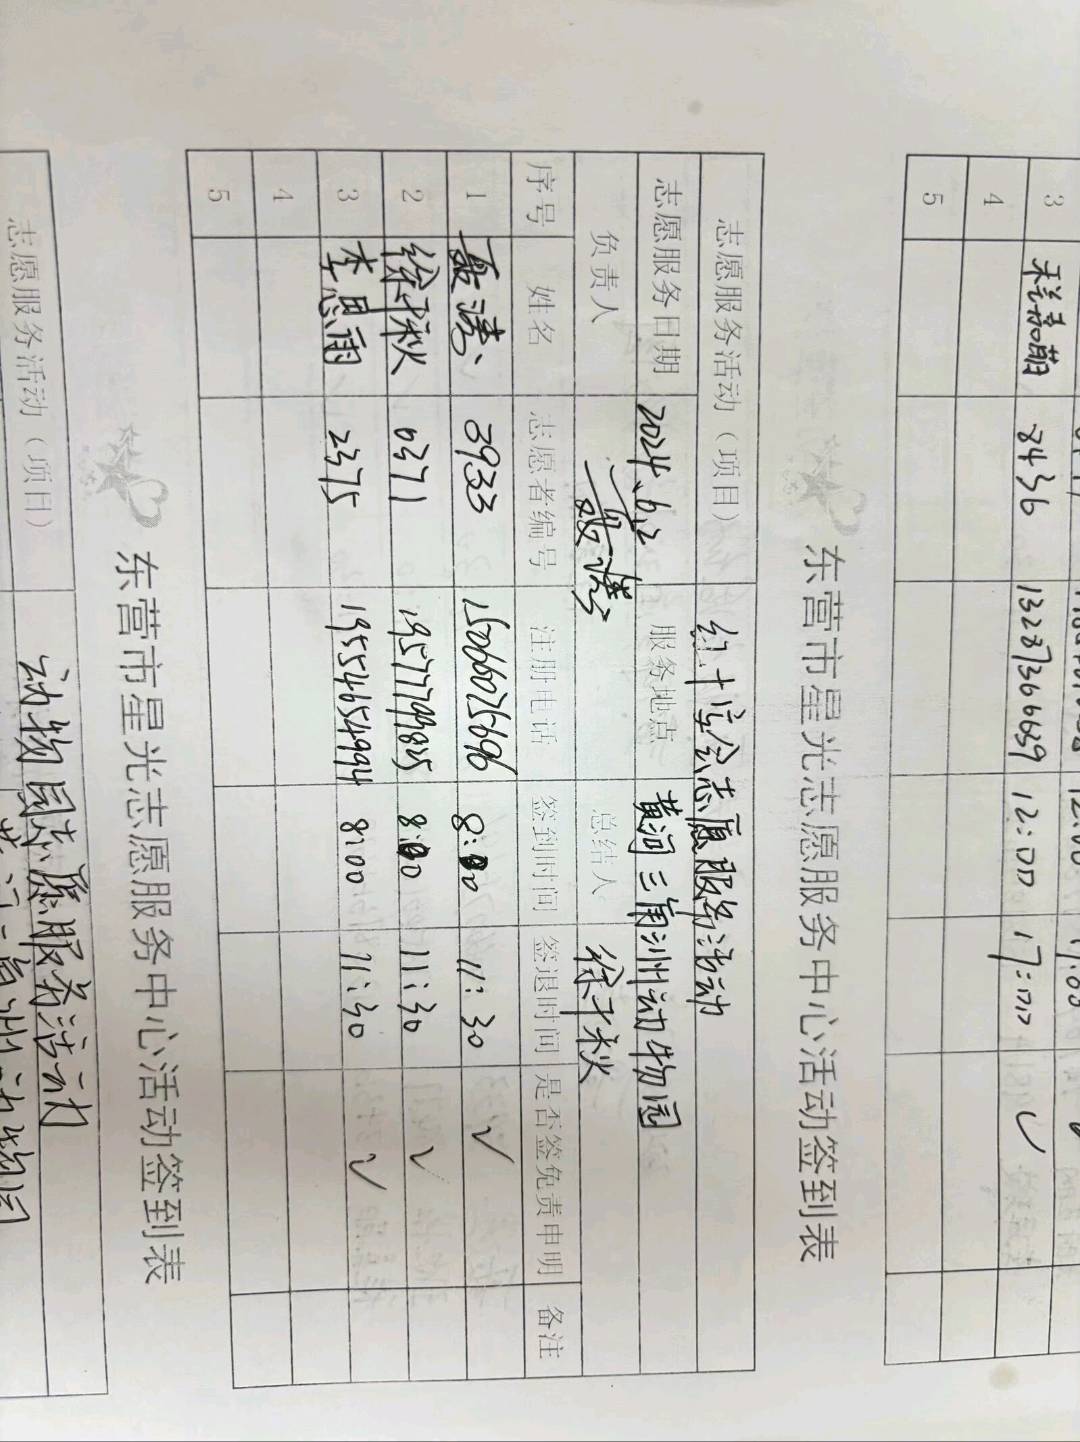 3 8436 13287366659 12:00 17:00 ✓
4
5
东营市星光志愿服务中心活动签到表
志愿服务活动（项目） 红十字会志愿服务活动
志愿服务日期 2024.6.2 服务地点 黄河三角洲动物园
负责人 总结人 徐千秋
序号 姓名 志愿者编号 注册电话 签到时间 签退时间 是否签免责申明 备注
1 3933 15066025696 8:00 11:30 ✓
2 徐千秋 0371 8:00 11:30 ✓
3 李思雨 2375 19554654994 8:00 11:30 ✓
4
5
东营市星光志愿服务中心活动签到表
志愿服务活动（项目） 动物园志愿服务活动